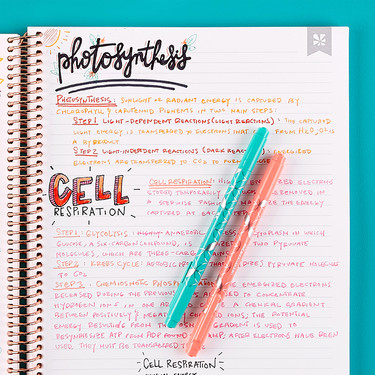 photosynthesis
PHOTOSYNTHESIS: SUNLIGHT OR RADIANT ENERGY IS CAPTURED BY
CHLOROPHYLL & CAROTENOID PIGMENTS IN TWO MAIN STEPS:
STEP 1: LIGHT-DEPENDENT REACTIONS (LIGHT REACTIONS) THE CAPTURED
LIGHT ENERGY IS TRANSFERRED TO ELECTRONS THAT FROM H2O, O2 IS
A BYPRODUCT
STEP 2: LIGHT-INDEPENDENT REACTIONS (DARK ENERGIZED
ELECTRONS ARE TRANSFERRED TO CO2 TO FORM
CELL
RESPIRATION
CELL RESPIRATION: ELECTRONS
STORED REMOVED IN
A STEPWISE THE ENERGY
CAPTURED AT EACH
STEP 1: GLYCOLYSIS: ANAEROBIC IN WHICH
GLUCOSE, A SIX-CARBON COMPOUND, IS TWO PYRUVATE
MOLECULES, WHICH ARE THREE-CARBON
STEP 2: KREBS CYCLE: AEROBIC PYRUVATE MOLECULE
TO CO2
STEP 3: CHEMIOSMOTIC ENERGIZED ELECTRONS
RELEASED DURING THE PREVIOUS TO CONCENTRATE
HYDROGEN IONS IN ONE GRADIENT
BETWEEN POSITIVELY & IONS; THE POTENTIAL
ENERGY RESULTING FROM THIS GRADIENT IS USED TO
RESYNTHESIZE ATP FROM ADP AFTER ELECTRONS HAVE BEEN
USED, THEY MUST BE TRANSFERRED TO
CELL RESPIRATION